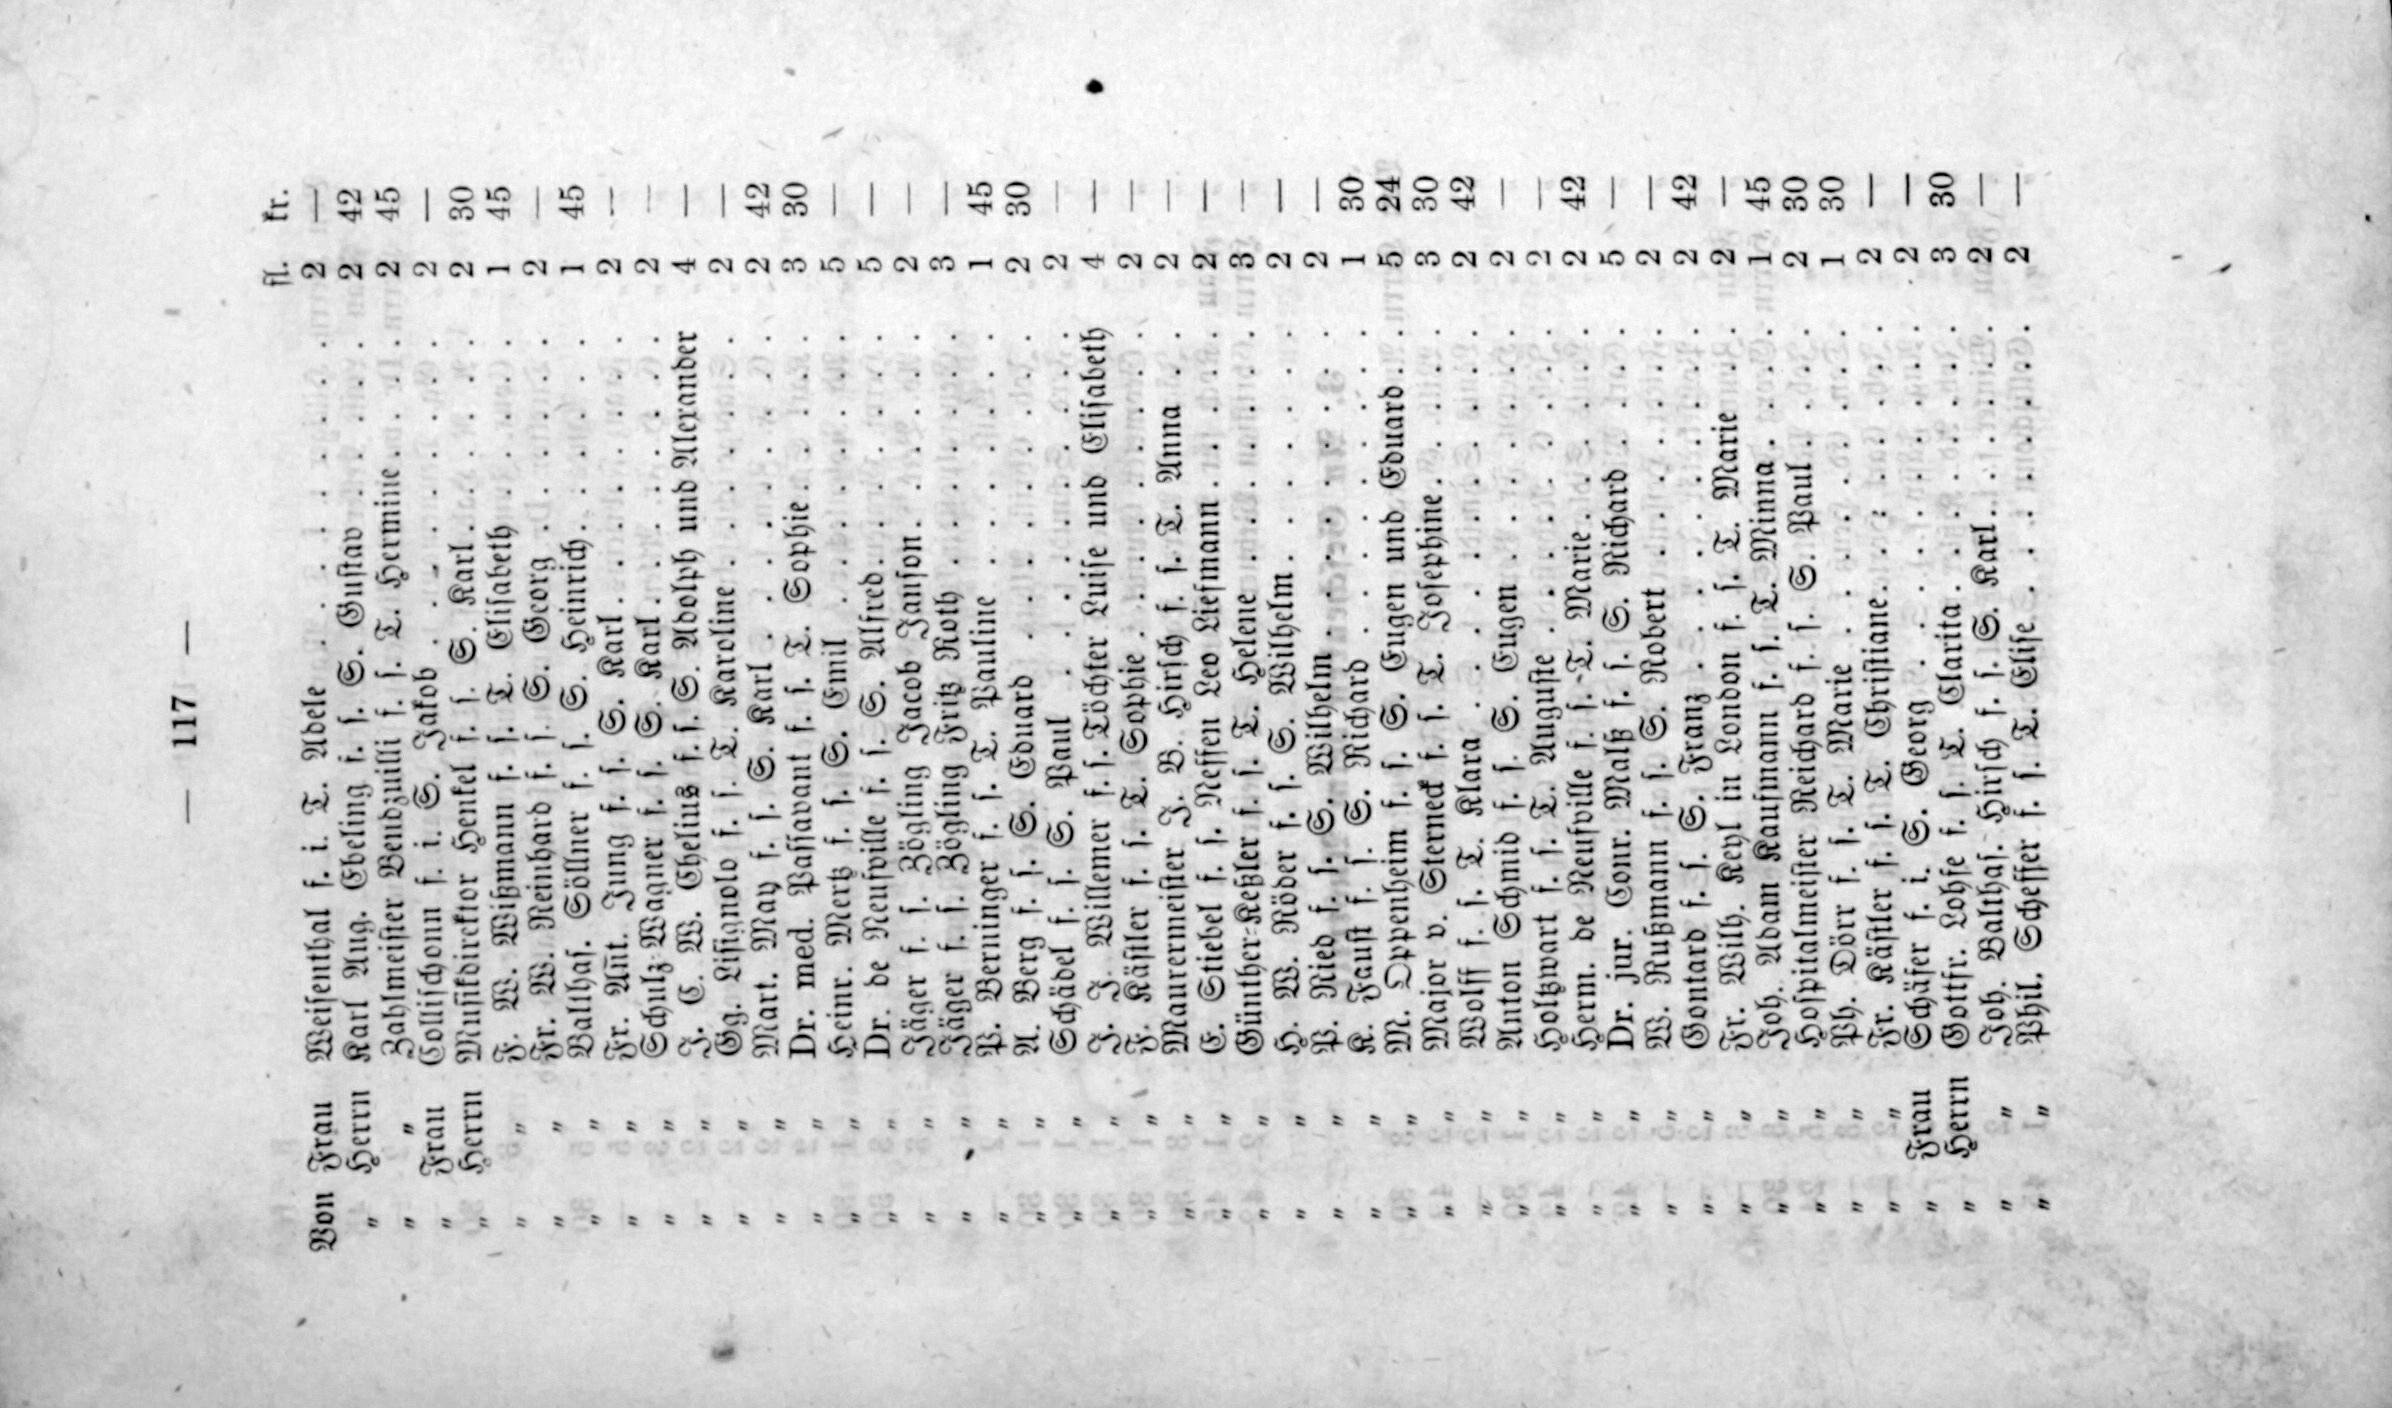 — 117 —
fl. kr.
Von Frau Weisenthal f. i. T. Adele . . . . . . . . . . 2 —
„ Herrn Karl Aug. Ebeling f. s. S. Gustav . . . . . . 2 42
„ „ Zahlmeister Bendzuilli f. s. T. Hermine . . . . 2 45
„ Frau Collischonn f. i. S. Jakob . . . . . . . . . 2 —
„ Herrn Musikdirektor Henkel f. s. S. Karl . . . . . . 2 30
„ „ F. W. Wißmann f. s. T. Elisabeth . . . . . . 1 45
„ „ Fr. W. Reinhard f. s. S. Georg . . . . . . . 2 —
„ „ Balthas. Söllner f. s. S. Heinrich . . . . . . 1 45
„ „ Fr. Ant. Jung f. s. S. Karl . . . . . . . . 2 —
„ „ Schulz-Wagner f. s. S. Karl . . . . . . . . 2 —
„ „ J. C. W. Chelius f. s. S. Adolph und Alexander 4 —
„ „ Gg. Lisignolo f. s. T. Karoline . . . . . . . 2 —
„ „ Mart. May f. s. S. Karl . . . . . . . . . 2 42
„ „ Dr. med. Passavant f. s. T. Sophie . . . . . 3 30
„ „ Heinr. Mertz f. s. S. Emil . . . . . . . . 5 —
„ „ Dr. de Neufville f. s. S. Alfred . . . . . . . 5 —
„ „ Jäger f. s. Zögling Jacob Janson . . . . . . 2 —
„ „ Jäger f. s. Zögling Fritz Roth . . . . . . . 3 —
„ „ P. Berninger f. s. T. Pauline . . . . . . . 1 45
„ „ A. Berg f. s. S. Eduard . . . . . . . . . 2 30
„ „ Schädel f. s. S. Paul . . . . . . . . . . 2 —
„ „ J. J. Willemer f. s. Töchter Luise und Elisabeth 4 —
„ „ F. Kästler f. s. T. Sophie . . . . . . . . . 2 —
„ „ Maurermeister J. B. Hirsch f. s. T. Anna . . 2 —
„ „ E. Stiebel f. s. Neffen Leo Liefmann . . . . . 2 —
„ „ Günther-Keßler f. s. T. Helene . . . . . . . 3 —
„ „ H. W. Röder f. s. S. Wilhelm . . . . . . . 2 —
„ „ P. Ried f. s. S. Wilhelm . . . . . . . . . 2 —
„ „ K. Faust f. s. S. Richard . . . . . . . . . 1 30
„ „ M. Oppenheim f. s. S. Eugen und Eduard . . 5 24
„ „ Major v. Sterneck f. s. T. Josephine . . . . . 3 30
„ „ Wolff f. s. T. Klara . . . . . . . . . . . 2 42
„ „ Anton Schmid f. s. S. Eugen . . . . . . . 2 —
„ „ Holtzwart f. s. T. Auguste . . . . . . . . . 2 —
„ „ Herm. de Neufville f. s. T. Marie . . . . . . 2 42
„ „ Dr. jur. Conr. Malß f. s. S. Richard . . . . 5 —
„ „ W. Rußmann f. s. S. Robert . . . . . . . 2 —
„ „ Gontard f. s. S. Franz . . . . . . . . . . 2 42
„ „ Fr. Wilh. Keyl in London f. s. T. Marie . . 2 —
„ „ Joh. Adam Kaufmann f. s. T. Minna . . . . 1 45
„ „ Hospitalmeister Reichard f. s. S. Paul . . . . 2 30
„ „ Ph. Dörr f. s. T. Marie . . . . . . . . . 1 30
„ „ Fr. Kästler f. s. T. Christiane . . . . . . . . 2 —
„ Frau Schäfer f. i. S. Georg . . . . . . . . . . 2 —
„ Herrn Gottfr. Lohse f. s. T. Clarita . . . . . . . . 3 30
„ „ Joh. Balthas. Hirsch f. s. S. Karl . . . . . . 2 —
„ „ Phil. Scheffer f. s. T. Elise . . . . . . . . . 2 —